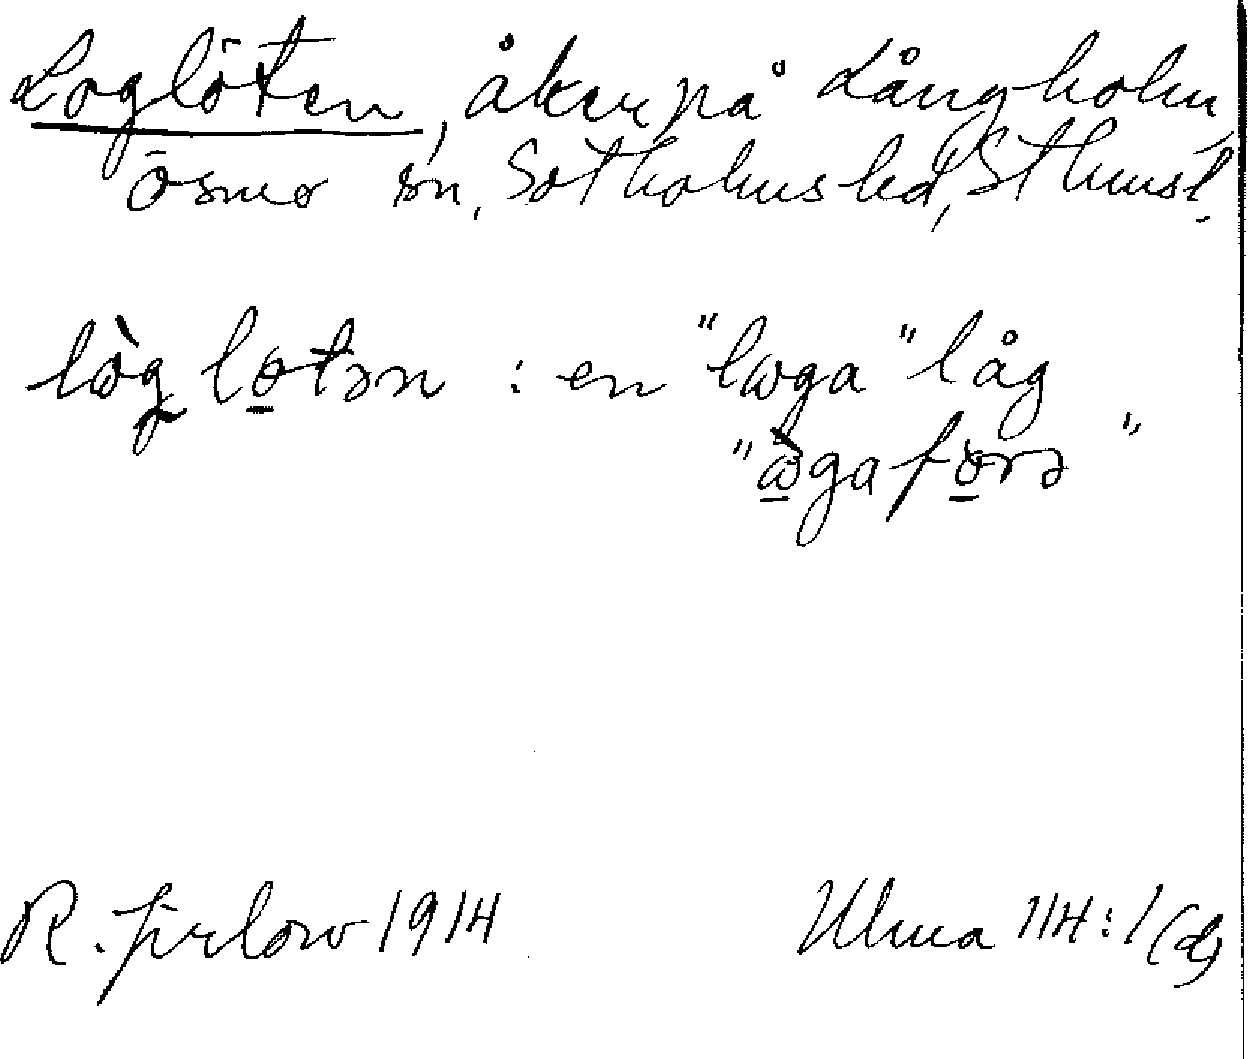 Loglöten, åker på Långholm,
Ösmo sn, Sotholms hd, Sthmsl.
lòglo̲tən : en "lωga" låg
"ὼ̲gafo̲rə"
R. Jirlow 1914
Ulma 114:1(d)